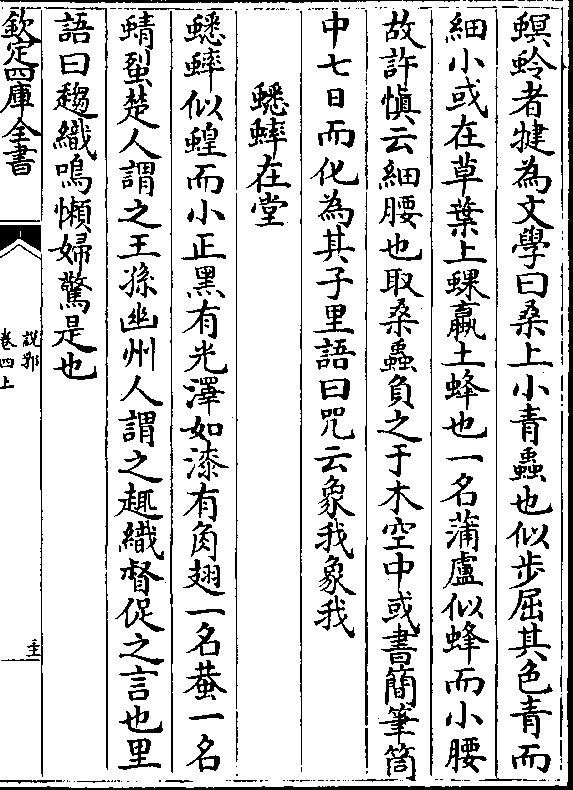 螟蛉者犍為文學曰桑上小青蟲也似步屈其色青而
細小或在草葉上蜾蠃土蜂也一名蒲盧似蜂而小腰
故許慎云細腰也取桑蟲負之于木空中或書簡筆筒
中七日而化為其子里語曰咒云象我象我
蟋蟀在堂
蟋蟀似蝗而小正黑有光澤如漆有角翅一名蛬一名
蜻蛚楚人謂之王孫幽州人謂之趣織督促之言也里
語曰趨織鳴懶婦驚是也
欽定四庫全書
說郛
卷四上